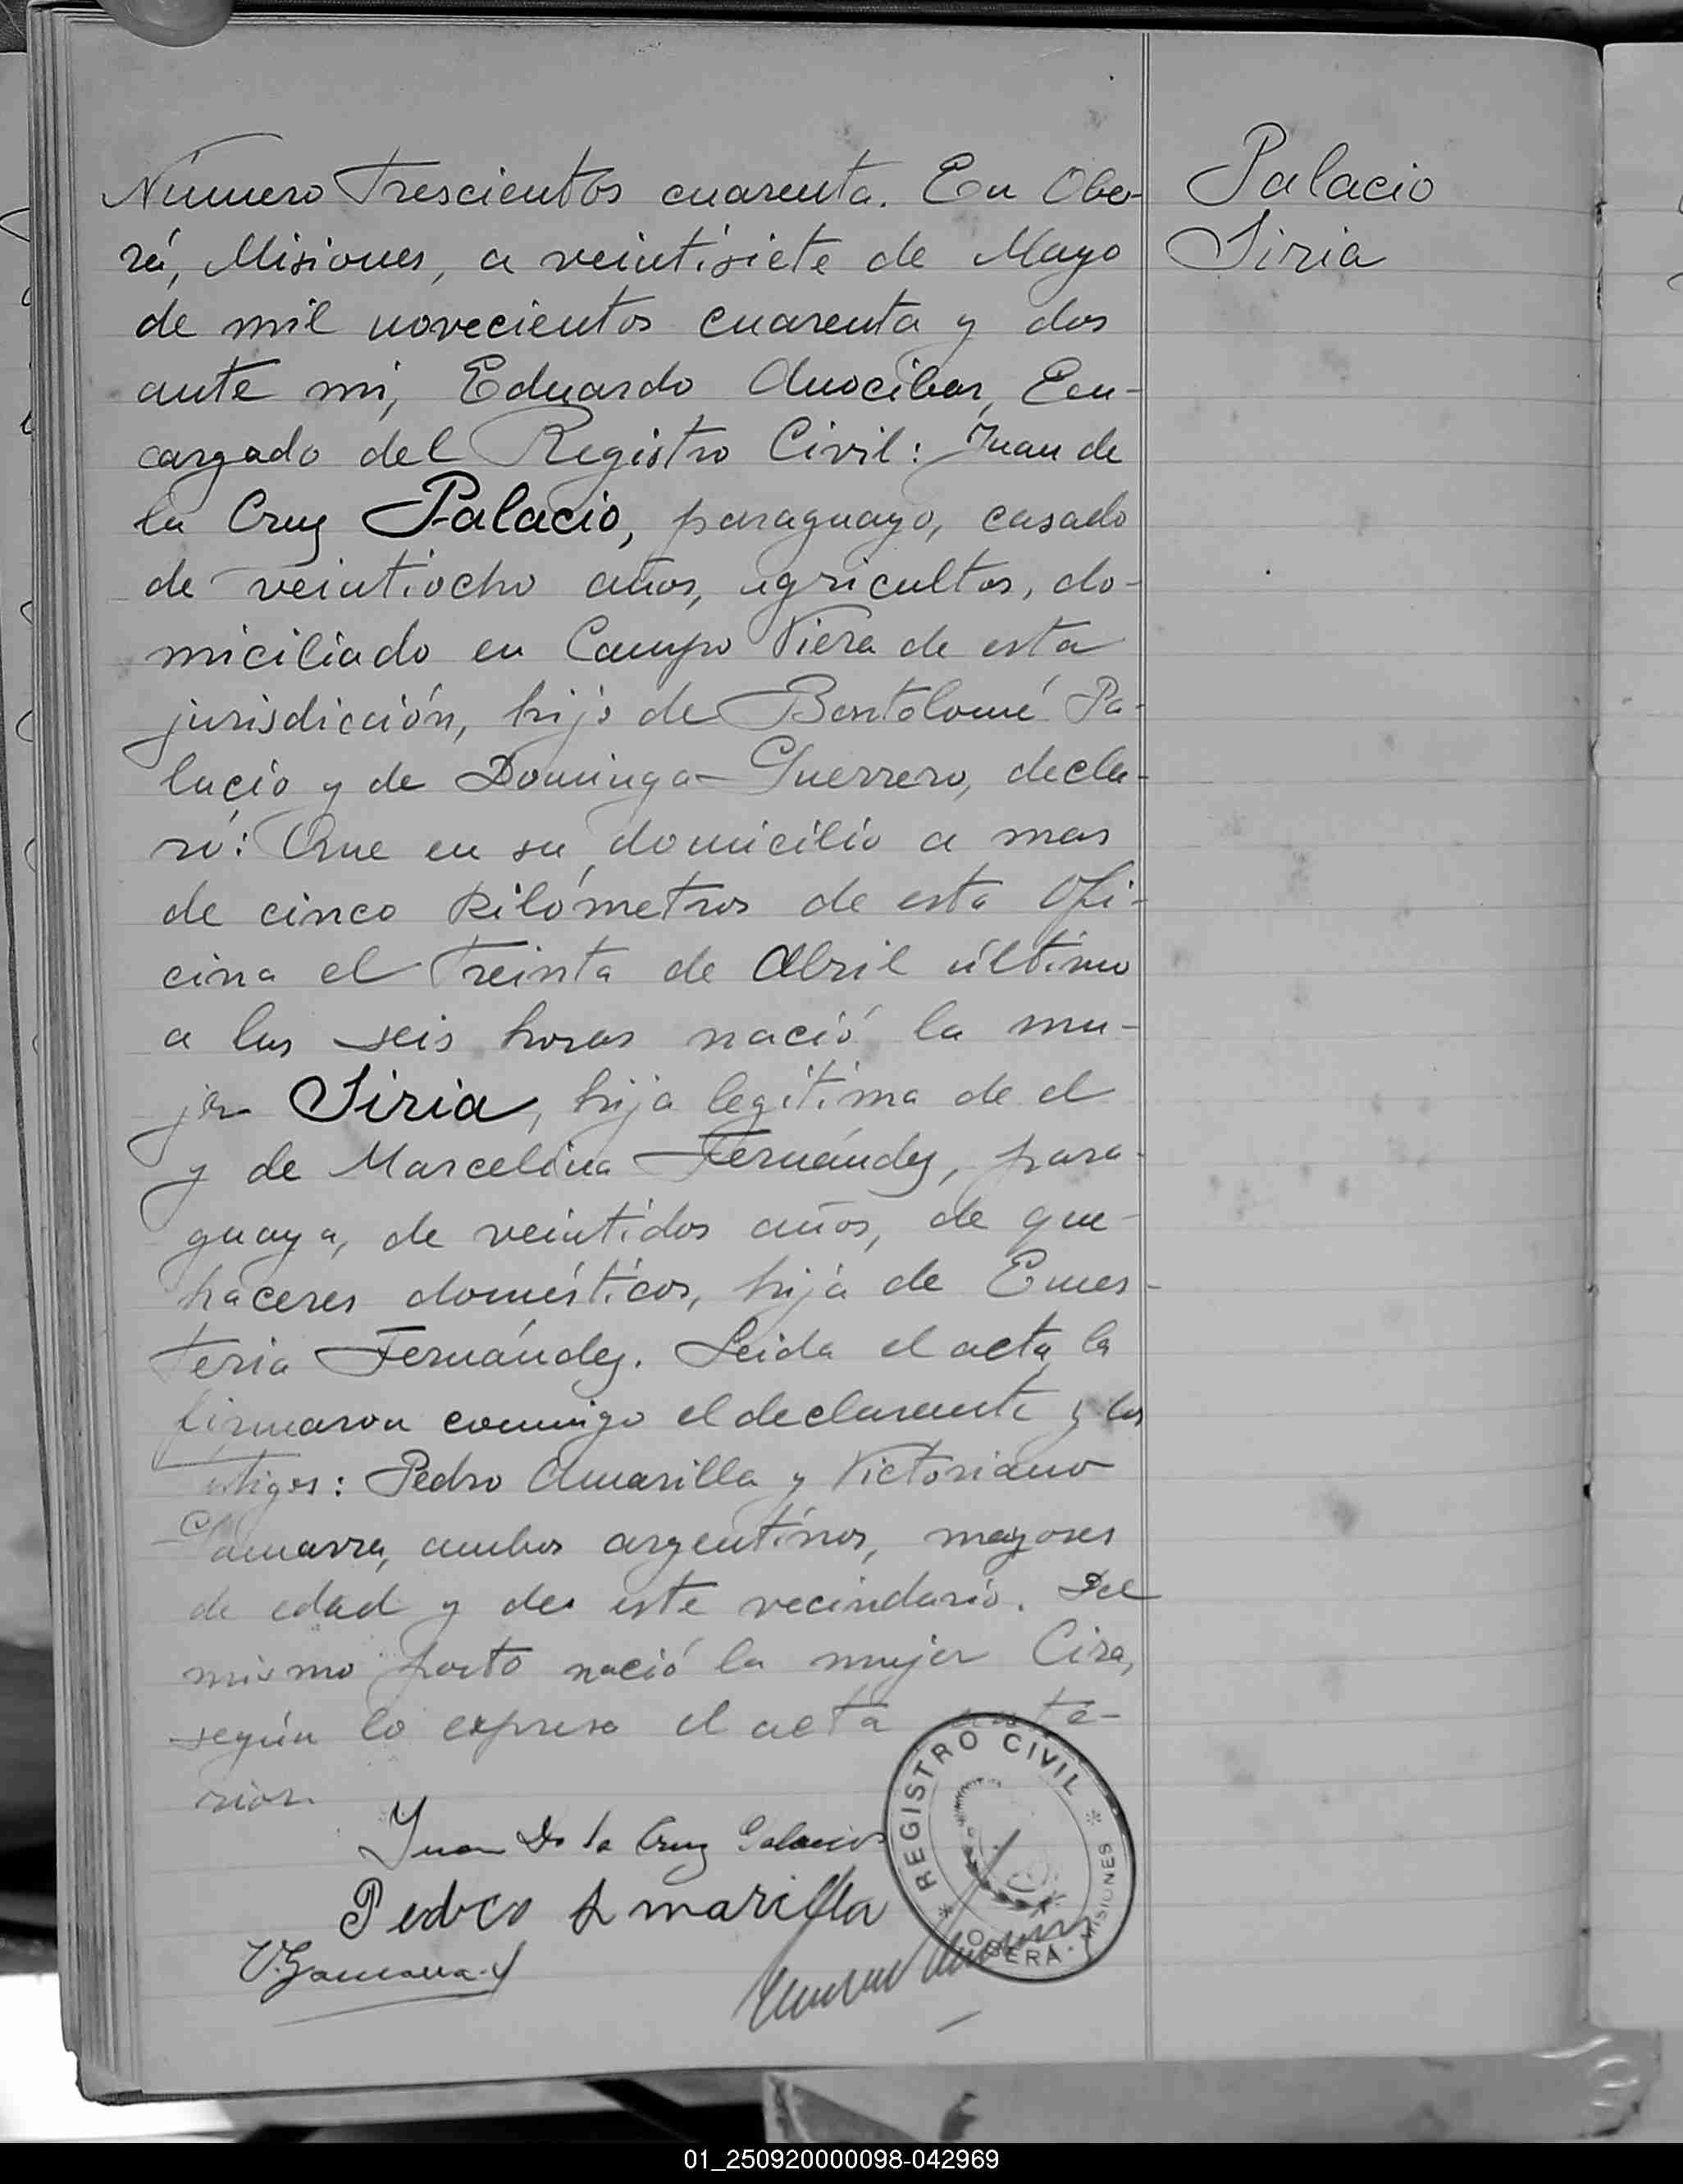 Número Trescientos cuarenta. En Obe-
rá, Misiones, a veintisiete de Mayo
de mil novecientos cuarenta y dos
ante mi, Eduardo Anocibar, En-
cargado del Registro Civil: Juan de
la Cruz Palacio, paraguayo, casado
de veintiocho años, agricultor, do-
miciliado en Campo Viera de esta
jurisdicción, hijo de Bartolomé Pa-
lacio y de Dominga Guerrero, decla-
ró: Que en su domicilio a mas
de cinco kilómetros de esta Ofi-
cina el Treinta de Abril último
a las seis horas nació la mu-
jer Siria, hija legítima de el
y de Marcelina Fernández, para-
guaya, de veintidos años, de que-
haceres domésticos, hija de Emes-
teria Fernández. Leida el acta la
firmaron conmigo el declarante y los
testigos: Pedro Amarilla y Victoriano
Gamarra, ambos argentinos, mayores
de edad y de este vecindario. Del
mismo parto nació la mujer Cira,
según lo expresa el acta ante-
rior.
Juan De la Cruz Palacios
Pedro Amarilla
V. Gamarra
REGISTRO CIVIL
OBERA - MISIONES
Palacio
Siria
01_250920000098-042969